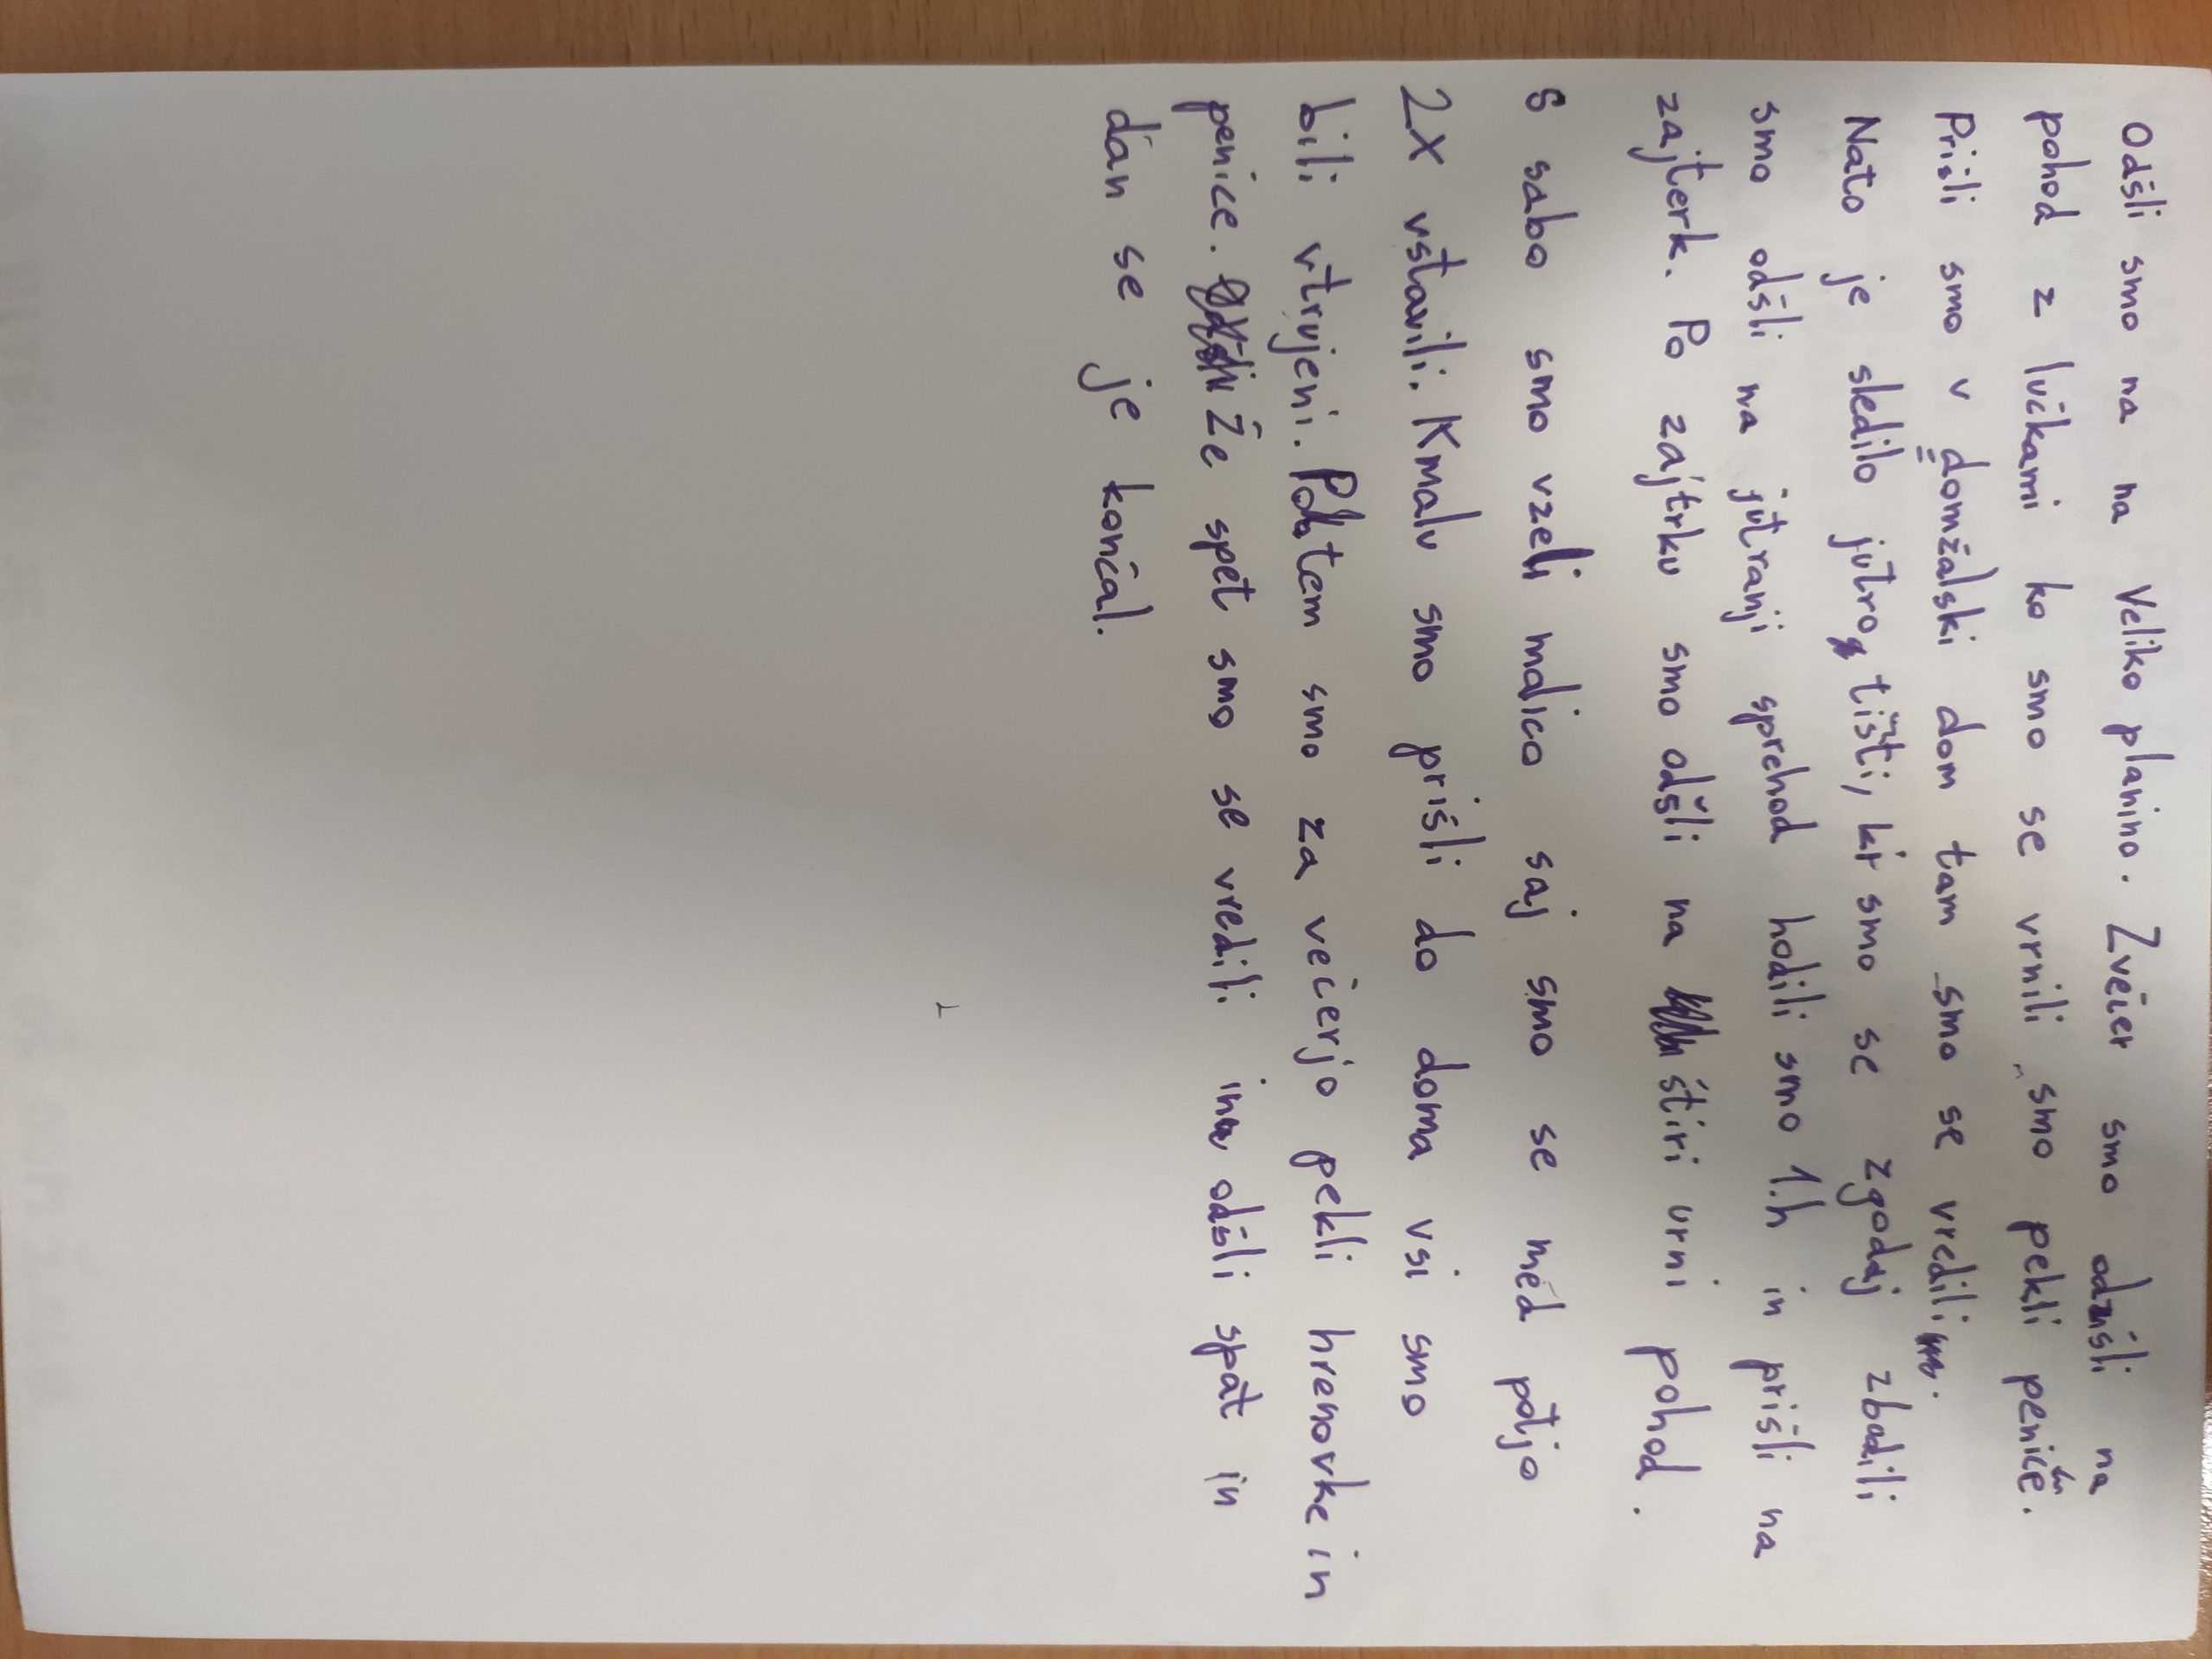 Odšli smo na na Veliko planino. Zvečer smo odšli na
pohod z lučkami ko smo se vrnili smo pekli peniče.
Prišli smo v domžalski dom tam smo se vredili.
Nato je sledilo jutro tišti, ki smo se zgodaj zbudili
smo odšli na jutranji sprehod hodili smo 1.h in prišli na
zajterk. Po zajtrku smo odšli na štiri urni pohod.
S sabo smo vzeli malico saj smo se med potjo
2X vstavili. Kmalu smo prišli do doma vsi smo
bili vtrujeni. Potem smo za večerjo pekli hrenovke in
penice. Že spet smo se vredili in odšli spat in
dan se je končal.